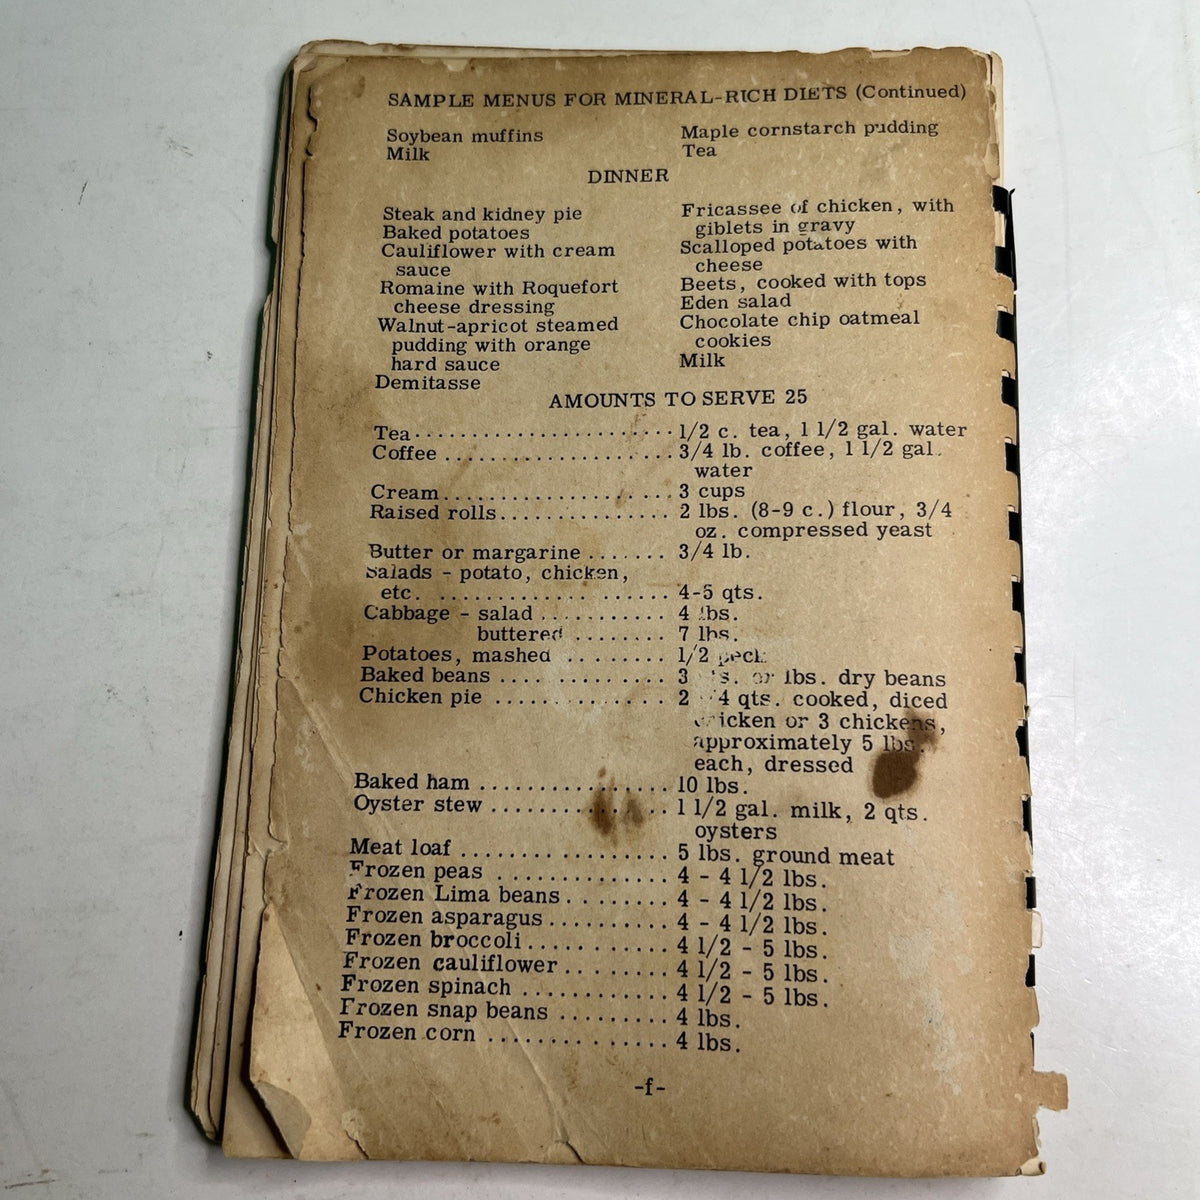 SAMPLE MENUS FOR MINERAL-RICH DIETS (Continued)
Soybean muffins
Milk
Maple cornstarch pudding
Tea
DINNER
Steak and kidney pie
Baked potatoes
Cauliflower with cream
sauce
Romaine with Roquefort
cheese dressing
Walnut-apricot steamed
pudding with orange
hard sauce
Demitasse
Fricassee of chicken, with
giblets in gravy
Scalloped potatoes with
cheese
Beets, cooked with tops
Eden salad
Chocolate chip oatmeal
cookies
Milk
AMOUNTS TO SERVE 25
Tea....................... 1/2 c. tea, 1 1/2 gal. water
Coffee .................... 3/4 lb. coffee, 1 1/2 gal.
water
Cream.................... 3 cups
Raised rolls............... 2 lbs. (8-9 c.) flour, 3/4
oz. compressed yeast
Butter or margarine ....... 3/4 lb.
Salads - potato, chicken,
etc. ..................... 4-5 qts.
Cabbage - salad ........... 4 lbs.
buttered ........ 7 lbs.
Potatoes, mashed ......... 1/2 peck
Baked beans .............. 3 or lbs. dry beans
Chicken pie .............. 2 4 qts. cooked, diced
chicken or 3 chickens,
approximately 5 lbs.
each, dressed
Baked ham ............... 10 lbs.
Oyster stew .............. 1 1/2 gal. milk, 2 qts.
oysters
Meat loaf ................ 5 lbs. ground meat
Frozen peas ............. 4 - 4 1/2 lbs.
Frozen Lima beans........ 4 - 4 1/2 lbs.
Frozen asparagus......... 4 - 4 1/2 lbs.
Frozen broccoli........... 4 1/2 - 5 lbs.
Frozen cauliflower........ 4 1/2 - 5 lbs.
Frozen spinach ........... 4 1/2 - 5 lbs.
Frozen snap beans ........ 4 lbs.
Frozen corn .............. 4 lbs.
-f-